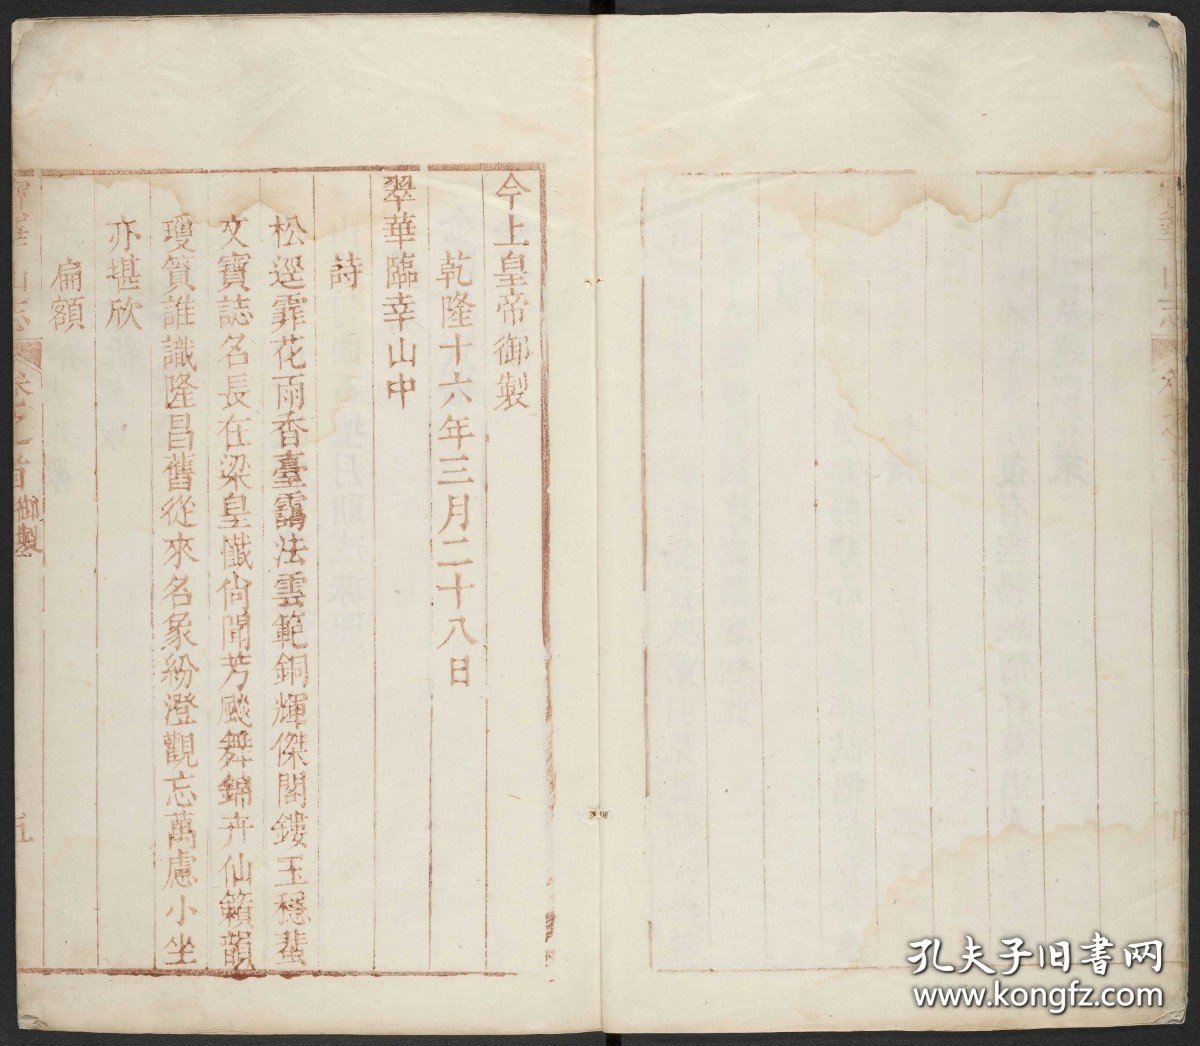 今上皇帝御製
乾隆十六年三月二十八日
翠華臨幸山中
詩
松逕霏花雨香臺靄法雲範銅輝傑閣鏤玉穩蜚
文寶誌名長在梁皇懺尙聞芳飈舞錦卉仙籟韻
瓊篔誰識隆昌舊從來名象紛澄觀忘萬慮小坐
亦堪欣
扁額
山志
卷之首
御製
五
孔夫子旧书网
www.kongfz.com